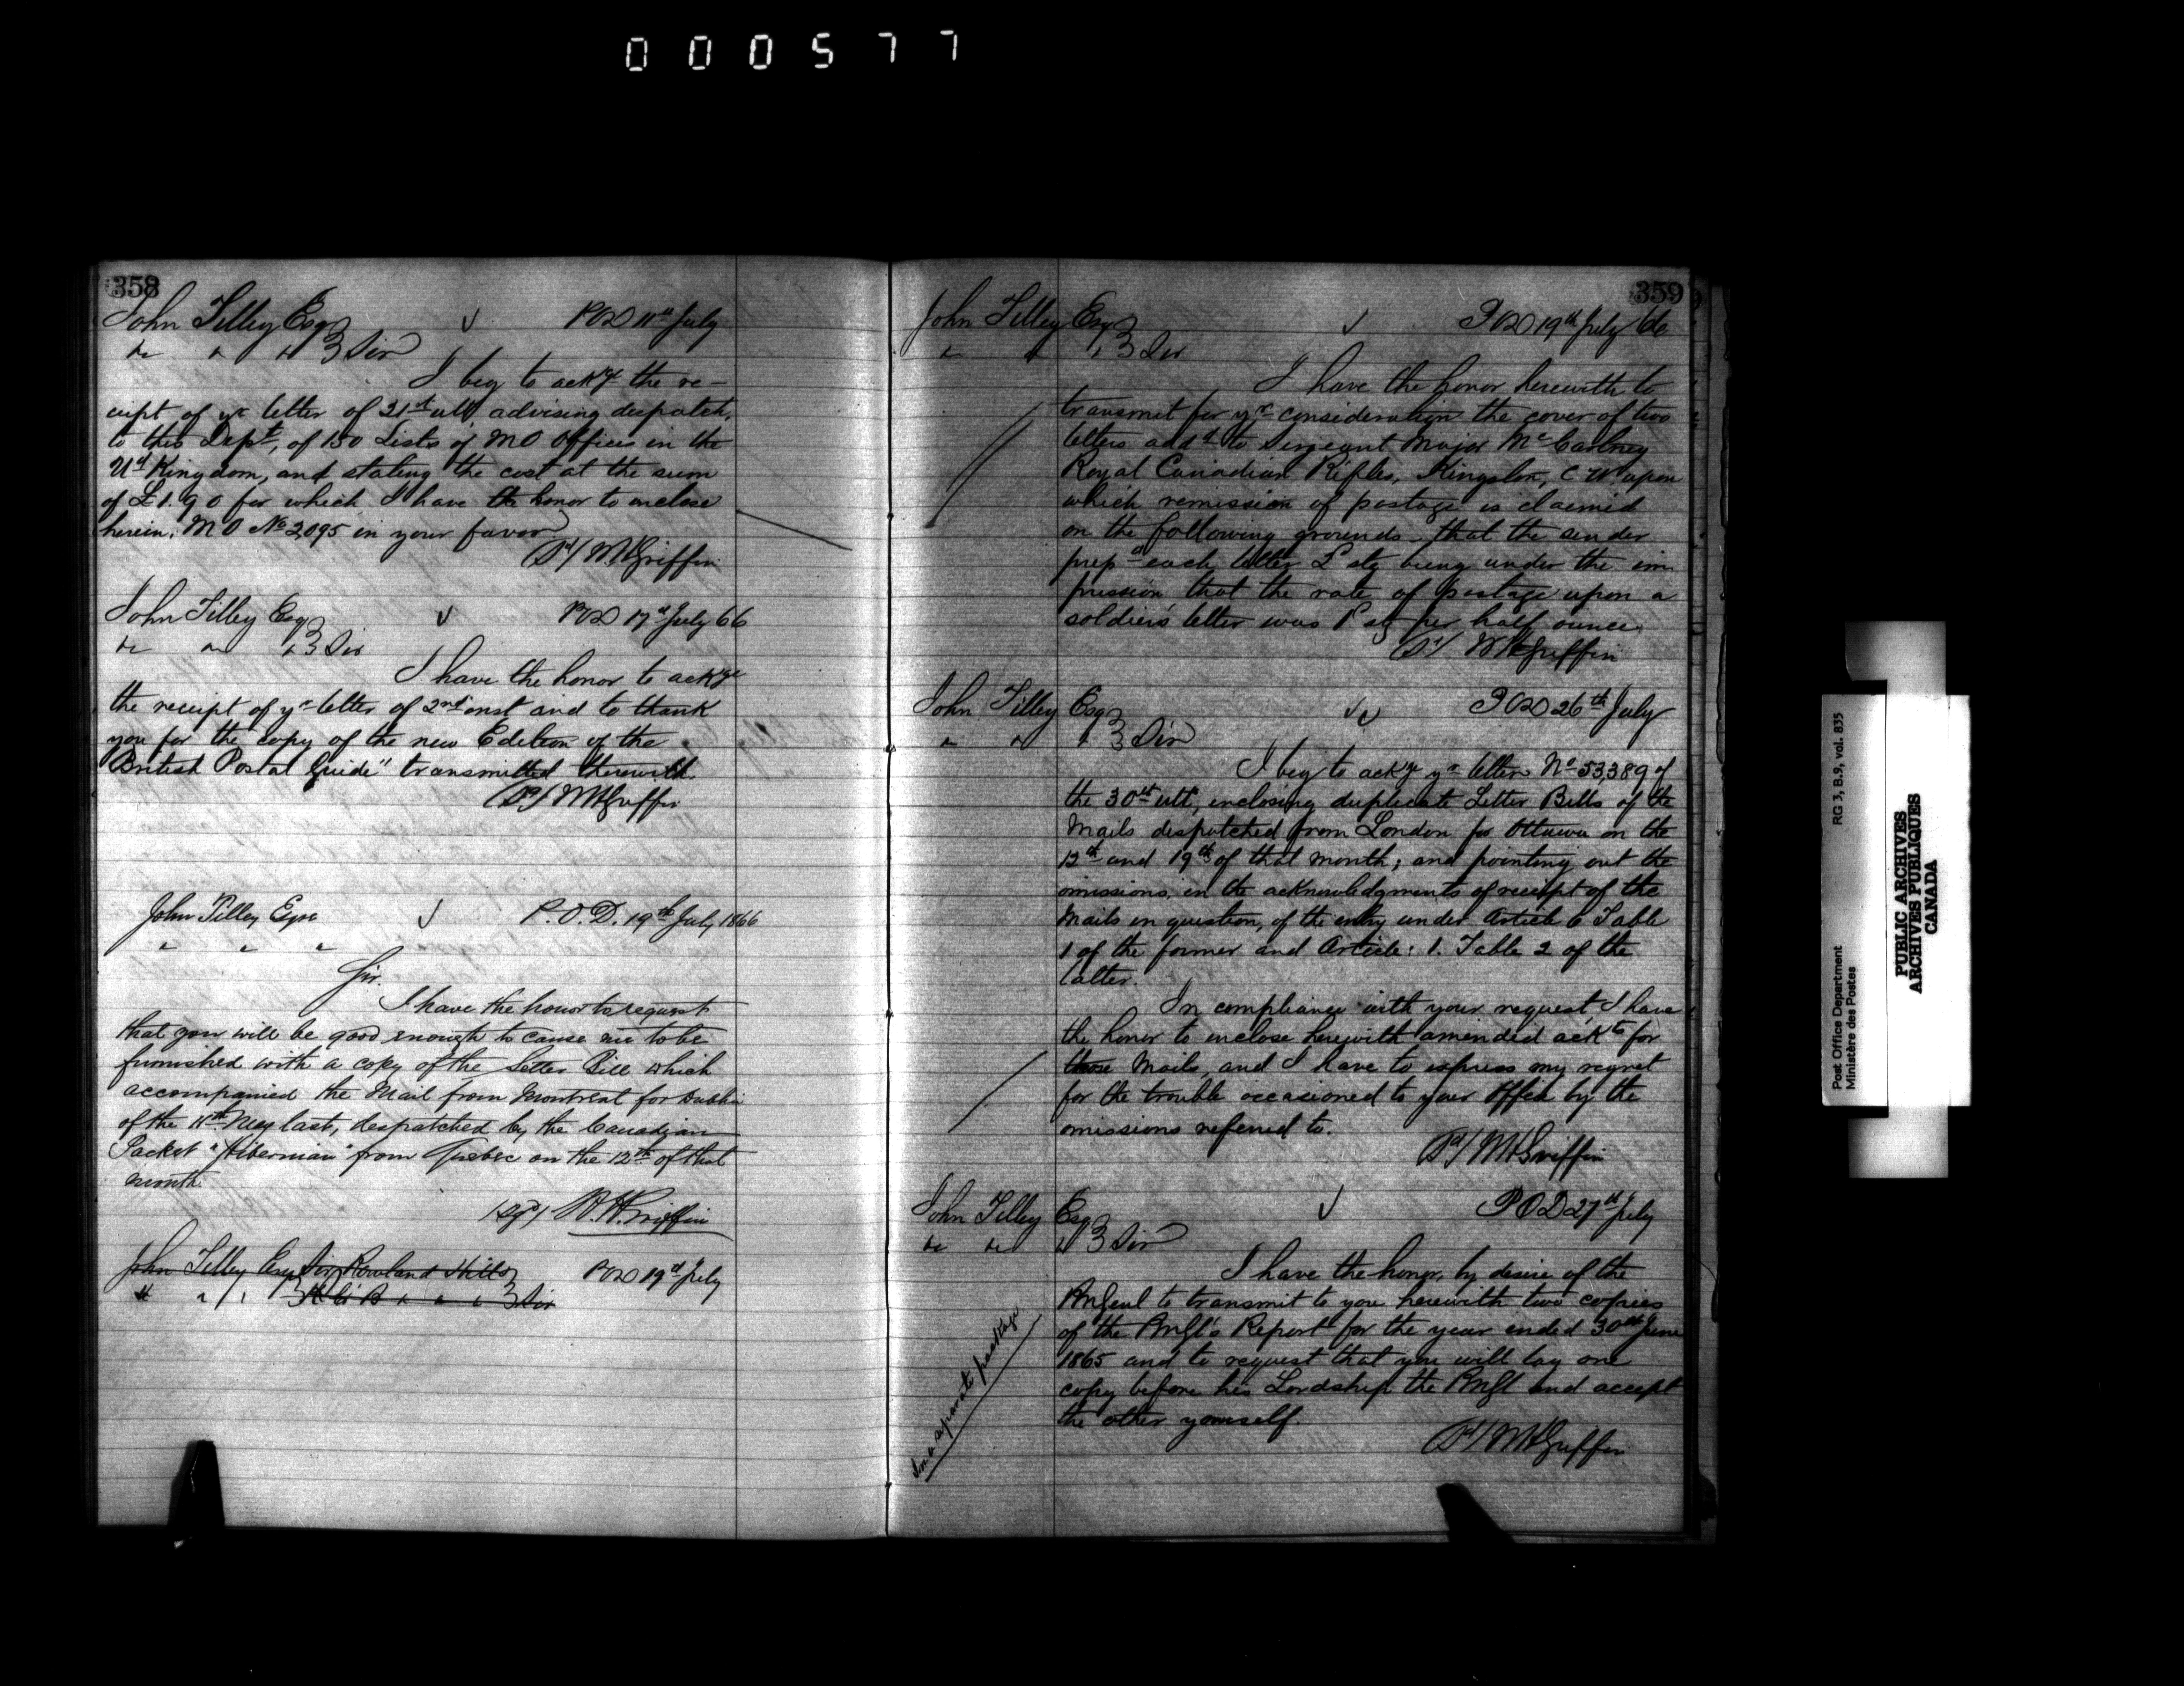 000577
358
John Tilley Esq POD 11th July
" " " Sir
I beg to ackge the re-
ceipt of yr letter of 21st ult, advising despatch,
to this Dept, of 150 Lists of MO Offices in the
Utd Kingdom, and stating the cost at the sum
of £1.9.0 for which I have the honor to enclose
herein, MO No 2,095 in your favor
Sd/ WHGriffin
John Tilley Esq POD 17th July 66
" " " Sir
I have the honor to ackge
the receipt of yr letter of 2nd inst and to thank
you for the copy of the new Edition of the
British Postal Guide" transmitted therewith.
Sd/ WHGriffin
John Tilley Esqre P.O.D. 19th July 1866
" " "
Sir.
I have the honor to request
that you will be good enough to cause me to be
furnished with a copy of the Letter Bill which
accompanied the Mail from Montreal for Dublin
of the 11th May last, despatched by the Canadian
Packet "Hibernian" from Quebec on the 12th of that
month.
/sgd/ W.H.Griffin
John Tilley Esq Sir Rowland Hill POD 19th July
" " " K C B " " " Sir
359
John Tilley Esq POD 19th July 66
" " " Sir
I have the honor herewith to
transmit for yr consideration the cover of two
letters addd to Sergeant Major McCartney
Royal Canadian Rifles, Kingston, C W. upon
which remission of postage is claimed
on the following grounds - that the sender
prepd each letter stg being under the im
pression that the rate of postage upon a
soldier's letter was 1d stg per half ounce.
Sd/ WHGriffin
John Tilley Esq POD 26th July
" " " Sir
I beg to ackge yr letter No 53,389 of
the 30th ult, enclosing duplicate Letter Bills of the
Mails despatched from London for Ottawa on the
12th and 19th of that month; and pointing out the
omissions, in the acknowledgments of receipt of the
Mails in question, of the entry under Article 6 Table
1 of the former and Article: 1. Table 2 of the
latter.
In compliance with your request I have
the honor to enclose herewith amended ackts for
those Mails, and I have to express my regret
for the trouble occasioned to your Office by the
omissions referred to.
Sd/ WHGriffin
John Tilley Esq POD 27th July
" " " Sir
In a separate package
I have the honor, by desire of the
PMGenl to transmit to you herewith two copies
of the PMGl's Report for the year ended 30th June
1865 and to request that you will lay one
copy before his Lordship the PMGl and accept
the other yourself.
Sd/ WHGriffin
Post Office Department RG 3, B.9, vol. 835
Ministère des Postes
PUBLIC ARCHIVES
ARCHIVES PUBLIQUES
CANADA